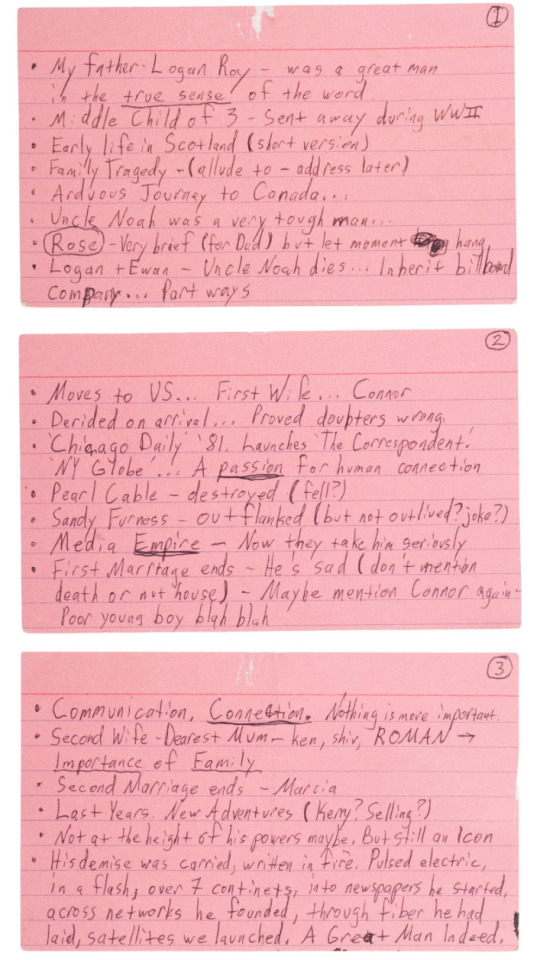 ①
• My father - Logan Roy - was a great man
in the true sense of the word
• Middle Child of 3 - Sent away during WWII
• Early life in Scotland (short version)
• Family Tragedy - (allude to - address later)
• Arduous Journey to Canada...
• Uncle Noah was a very tough man...
• Rose - Very brief (for Dad) but let moment hang
• Logan + Ewan - Uncle Noah dies... Inherit billboard
Company... Part ways
②
• Moves to US... First Wife... Connor
• Derided on arrival... Proved doubters wrong.
• 'Chicago Daily' '81. Launches 'The Correspondent.'
'NY Globe'... A passion for human connection
• Pearl Cable - destroyed (fell?)
• Sandy Furness - outflanked (but not outlived? joke?)
• Media Empire - Now they take him seriously
• First Marriage ends - He's sad (don't mention
death or nut house) - Maybe mention Connor again -
Poor young boy blah blah
③
• Communication. Connection. Nothing is more important.
• Second Wife - Dearest Mum - Ken, Shiv, ROMAN →
Importance of Family
• Second Marriage ends - Marcia
• Last Years. New Adventures (Kerry? Selling?)
• Not at the height of his powers maybe. But still an Icon
• His demise was carried, written in fire. Pulsed electric,
in a flash, over 7 continets, into newspapers he started,
across networks he founded, through fiber he had
laid, satellites we launched. A Great Man Indeed.